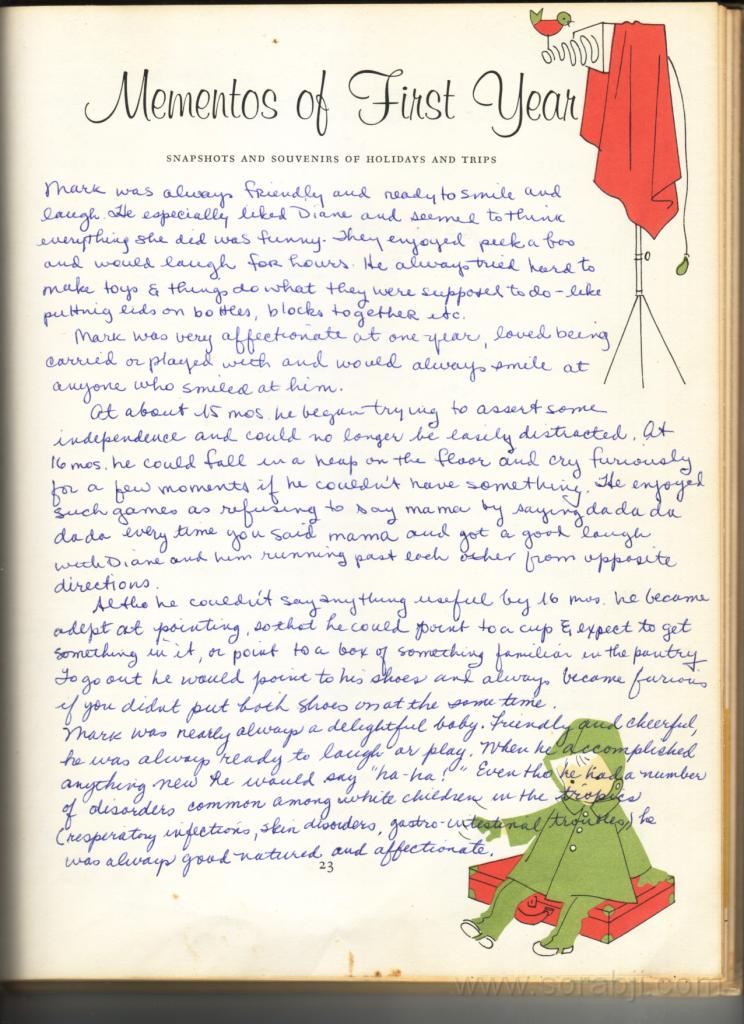 Mementos of First Year
SNAPSHOTS AND SOUVENIRS OF HOLIDAYS AND TRIPS
Mark was always friendly and ready to smile and
laugh. He especially liked Diane and seemed to think
everything she did was funny. They enjoyed peek a boo
and would laugh for hours. He always tried hard to
make toys & things do what they were supposed to do - like
putting lids on bottles, blocks together etc.
Mark was very affectionate at one year, loved being
carried or played with and would always smile at
anyone who smiled at him.
At about 15 mos. he began trying to assert some
independence and could no longer be easily distracted. At
16 mos. he could fall in a heap on the floor and cry furiously
for a few moments if he couldn't have something. He enjoyed
such games as refusing to say mama by saying da da da
da da every time you said mama and got a good laugh
with Diane and him running past each other from opposite
directions.
Altho he couldn't say anything useful by 16 mos. he became
adept at pointing, so that he could point to a cup & expect to get
something in it, or point to a box of something familiar in the pantry
To go out he would point to his shoes and always became furious
if you didnt put both shoes on at the same time.
Mark was nearly always a delightful baby. Friendly and cheerful,
he was always ready to laugh or play. When he accomplished
anything new he would say "ha-ha!" Even tho he had a number
of disorders common among white children in the tropics
(respiratory infections, skin disorders, gastro-intestinal troubles) he
was always good-natured and affectionate.
23
www.sorabji.com